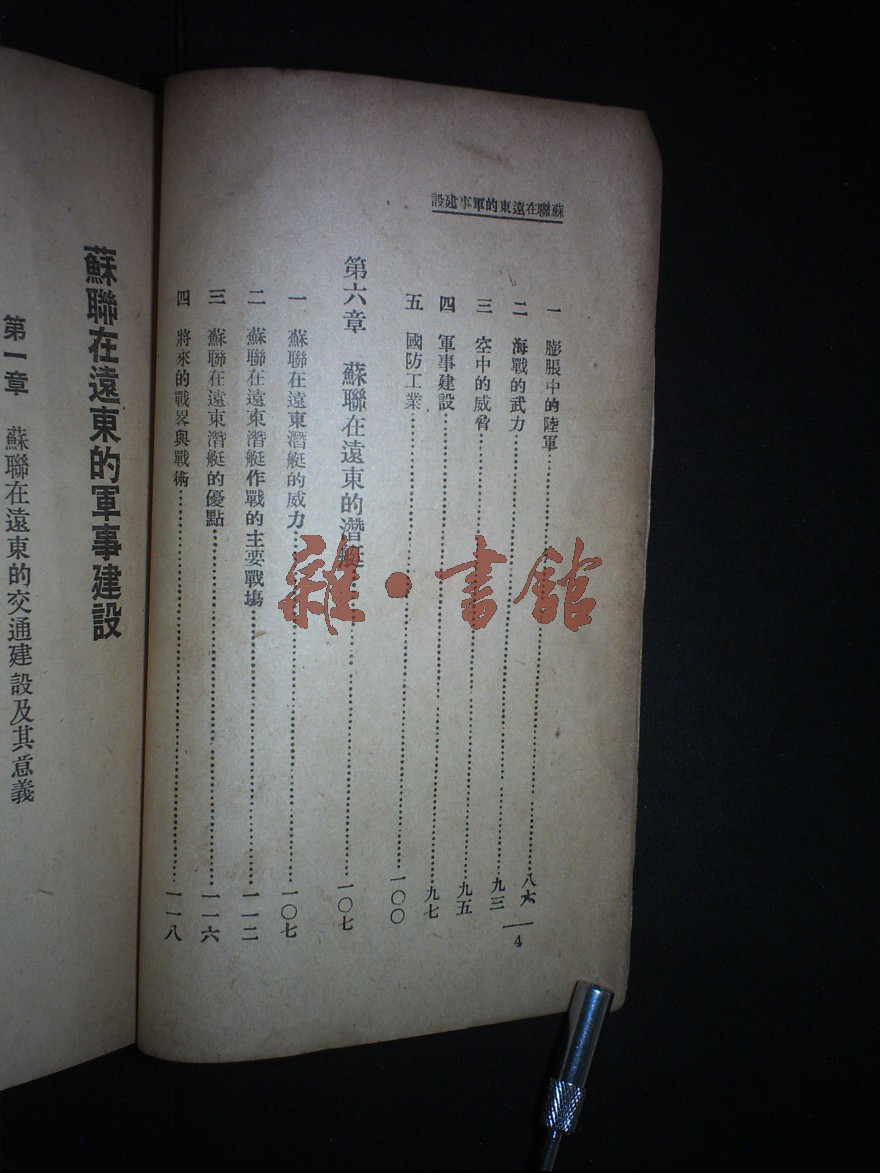 蘇聯在遠東的軍事建設
一 膨脹中的陸軍……八六
二 海戰的武力……九三
三 空中的威脅……九五
四 軍事建設……九七
五 國防工業……一〇〇
第六章 蘇聯在遠東的潛艇……一〇七
一 蘇聯在遠東潛艇的威力……一〇七
二 蘇聯在遠東潛艇作戰的主要戰場……一一二
三 蘇聯在遠東潛艇的優點……一一六
四 將來的戰畧與戰術……一一八
4
蘇聯在遠東的軍事建設
第一章 蘇聯在遠東的交通建設及其意義
雜·書館